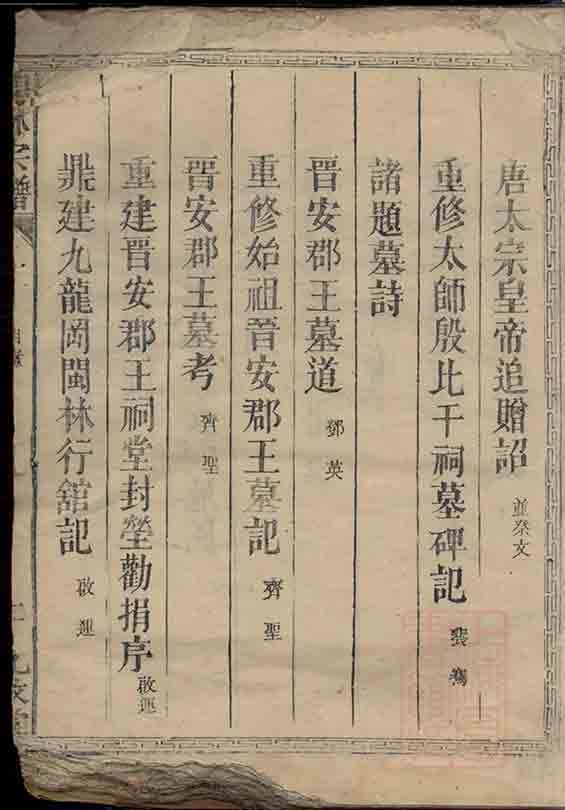 唐太宗皇帝追贈詔 並祭文
重修太師殷比干祠墓碑記 裴騫
諸題墓詩
晉安郡王墓道 鄧英
重修始祖晉安郡王墓記 齊聖
晉安郡王墓考 齊聖
重建晉安郡王祠堂封塋勸捐序 啟運
鼎建九龍岡閩林行舘記 啟運
林宗譜